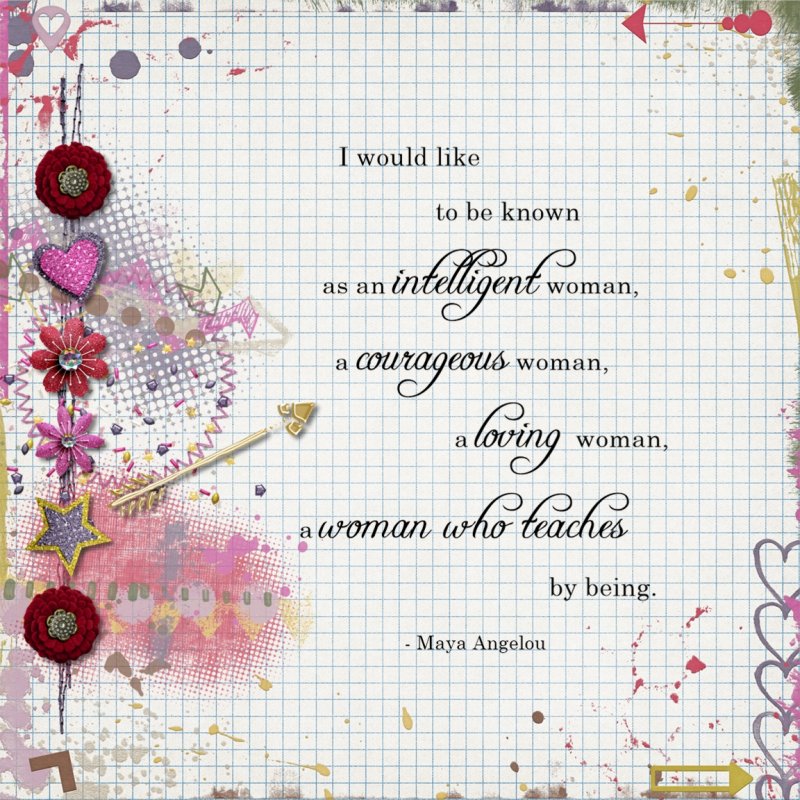 I would like
to be known
as an intelligent woman,
a courageous woman,
a loving woman,
a woman who teaches
by being.
- Maya Angelou